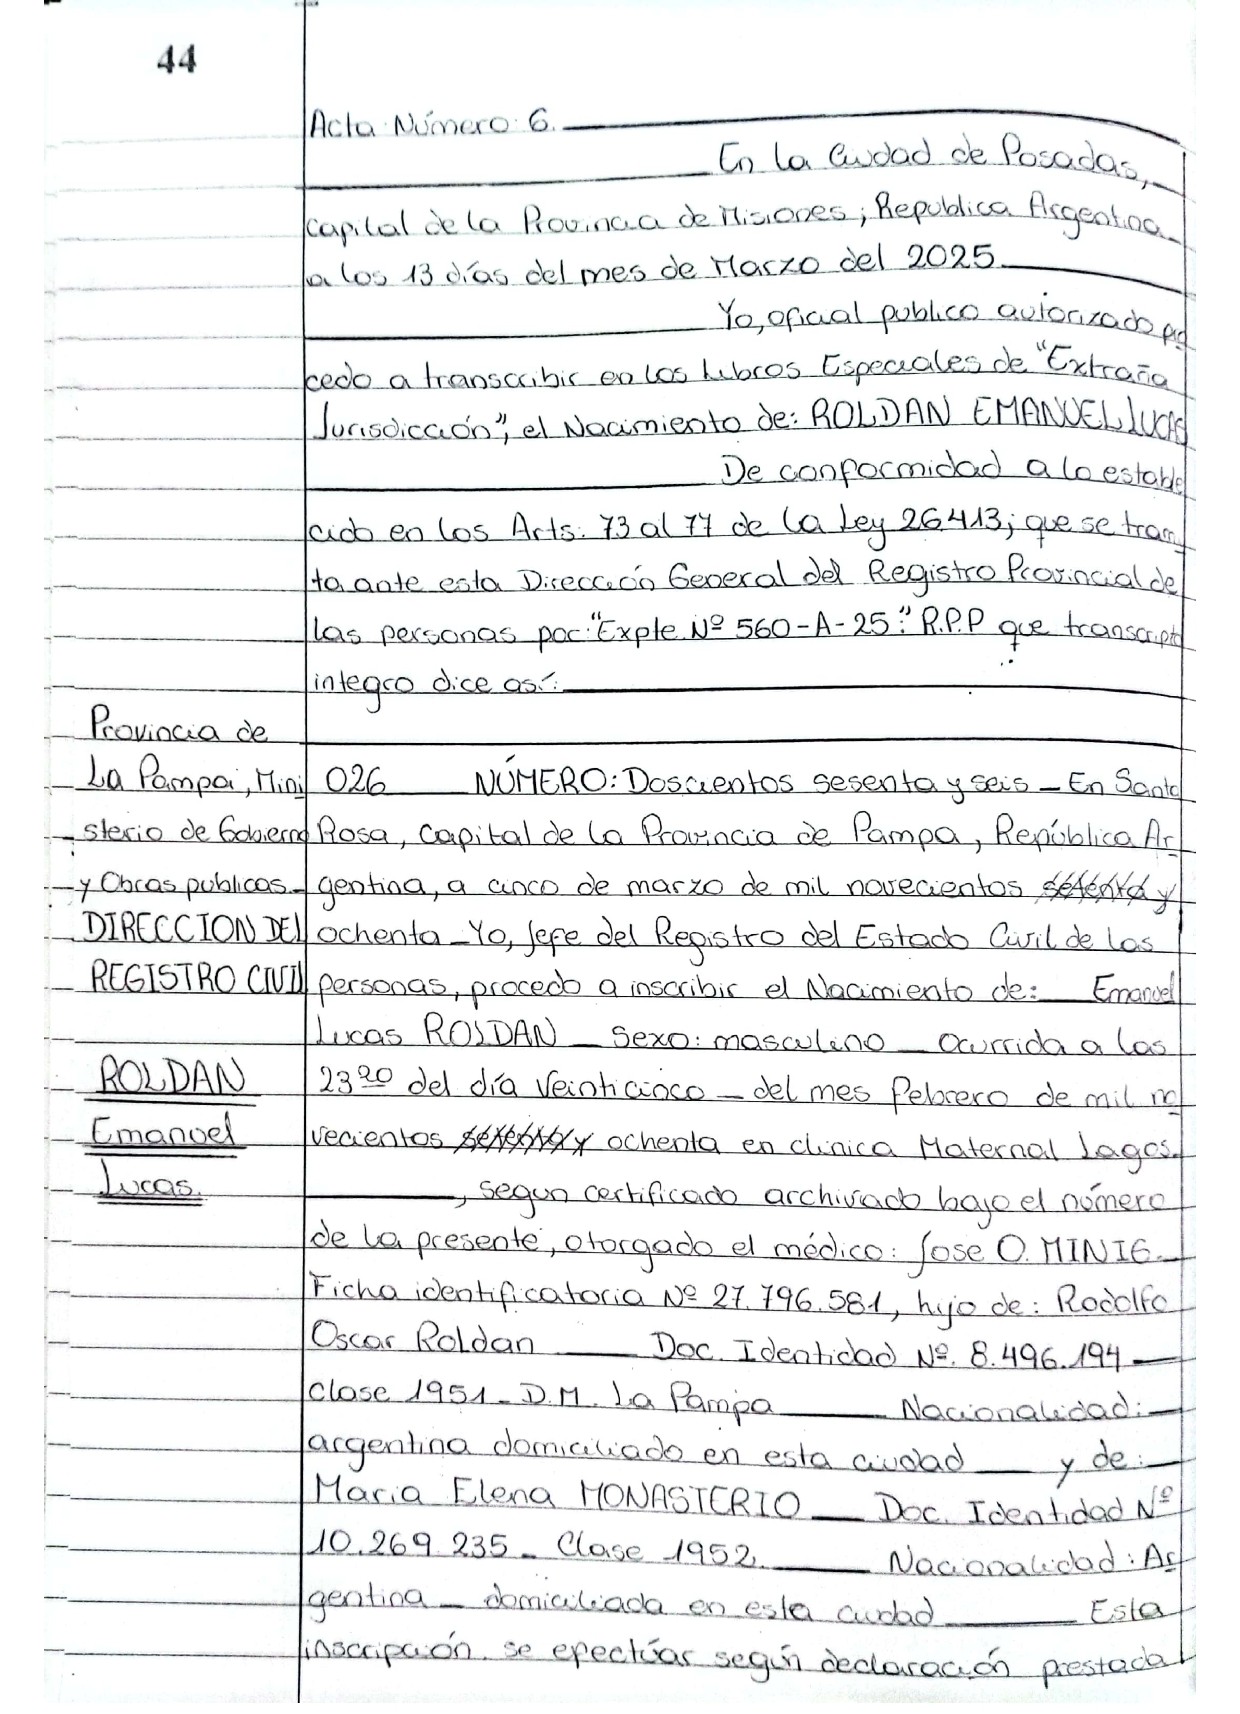 44
Acta Número 6.
En la Ciudad de Posadas,
capital de la Provincia de Misiones; Republica Argentina
a los 13 días del mes de Marzo del 2025
Yo, oficial publico autorizado pro
cedo a transcribir en los Libros Especiales de "Extraña
Jurisdicción", el Nacimiento de: ROLDAN EMANUEL LUCAS
De conformidad a lo estable
cido en los Arts. 73 al 77 de la Ley 26.413; que se trami
ta ante esta Dirección General del Registro Provincial de
las personas por: "Expte. Nº 560-A-25". R.P.P que transcripto
integro dice así:
Provincia de
La Pampa, Mini
sterio de Gobierno
y Obras publicas
DIRECCION DEL
REGISTRO CIVIL
ROLDAN
Emanuel
Lucas.
026 NÚMERO: Doscientos sesenta y seis - En Santa
Rosa, capital de la Provincia de Pampa, República Ar
gentina, a cinco de marzo de mil novecientos setenta y
ochenta - Yo, Jefe del Registro del Estado Civil de las
personas, procedo a inscribir el Nacimiento de: Emanuel
Lucas ROLDAN - Sexo: masculino - Ocurrida a las
23 20 del día Veinticinco - del mes febrero de mil no
vecientos setenta y ochenta en clínica Maternal Lagos.
, segun certificado archivado bajo el número
de la presente, otorgado el médico: Jose O. MINIG
Ficha identificatoria Nº 27.796.581, hijo de: Rodolfo
Oscar Roldan Doc. Identidad Nº. 8.496.194
Clase 1951 - D.M. La Pampa Nacionalidad:
argentina domiciliado en esta ciudad y de:
Maria Elena MONASTERIO Doc. Identidad Nº
10.269.235 - Clase 1952. Nacionalidad: Ar
gentina - domiciliada en esta ciudad Esta
inscripción se efectúar según declaración prestada